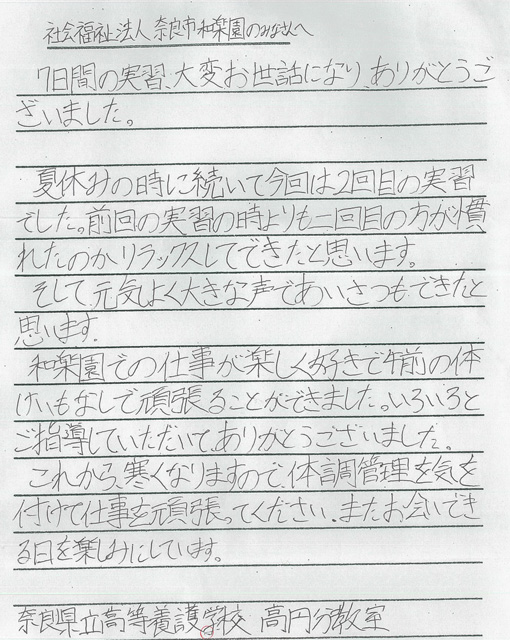 社会福祉法人 奈良市和楽園のみなさんへ
7日間の実習、大変お世話になり、ありがとうご
ざいました。
夏休みの時に続いて今回は2回目の実習
でした。前回の実習の時よりも二回目の方が慣
れたのかリラックスしてできたと思います。
そして元気よく大きな声であいさつもできたと
思います。
和楽園での仕事が楽しく好きで午前の休
けいもなしで頑張ることができました。いろいろと
ご指導していただいて、ありがとうございました。
これから、寒くなりますので、体調管理を気を
付けて仕事を頑張ってください。またお会いでき
る日を楽しみにしています。
奈良県立高等養護学校 高円分教室